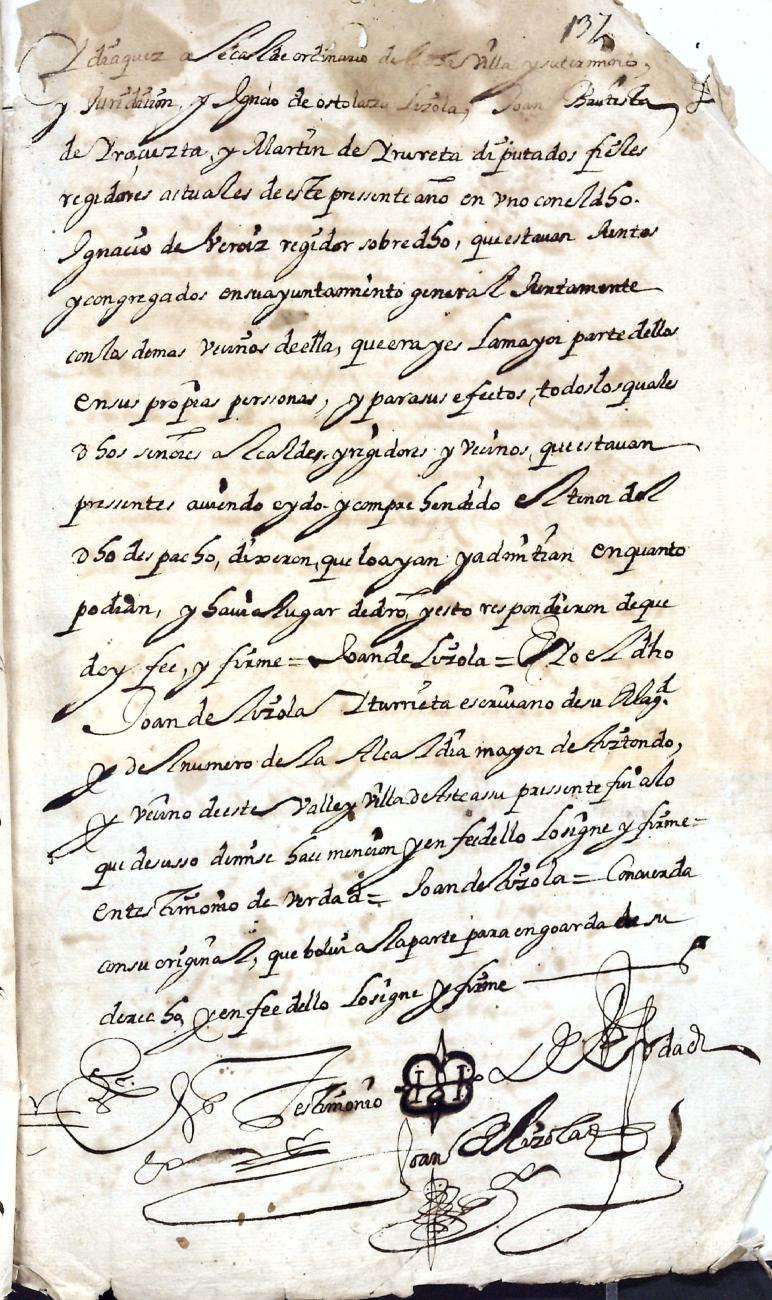 137
Ydiaquez alcalde ordinario de esta Villa y su termino,
y Juridicion, y Ignacio de ostolaza Lizola, Joan Bautista
de Yraçuzta, y Martin de Yrureta diputados fieles
regidores actuales de este pressente año en vno con el dho.
Ignacio de Veroiz regidor sobre dho, que estauan Juntos
y congregados en su ayuntamiento general Juntamente
con los demas vecinos de ella, que era y es La mayor parte dellos
en sus propias perssonas, y para sus efectos, todos los quales
dhos señores alcaldes y regidores y vecinos, que estauan
pressentes auiendo oydo y comprehendido el tenor del
dho despacho, dixeron, que loayan y admitian en quanto
podian, y hauia lugar de dro, y esto respondieron de que
doy fee, y firme = Joan de Lizola = E Yo el dho
Joan de Lizola Yturrieta escriuano de su Magd.
y del numero de la Alcaldia mayor de Aiztondo,
y vecino de este Valle y Villa de Asteasu pressente fui a lo
que de susso de mi se hace mencion y en fee dello Lo signe y firme =
en testimonio de verdad = Joan de Lizola = Concuerda
con su original, que bolui a la parte para en goarda de su
derecho, y en fee dello Lo signe y firme
En Testimonio de Verdad
Joan de Lizola